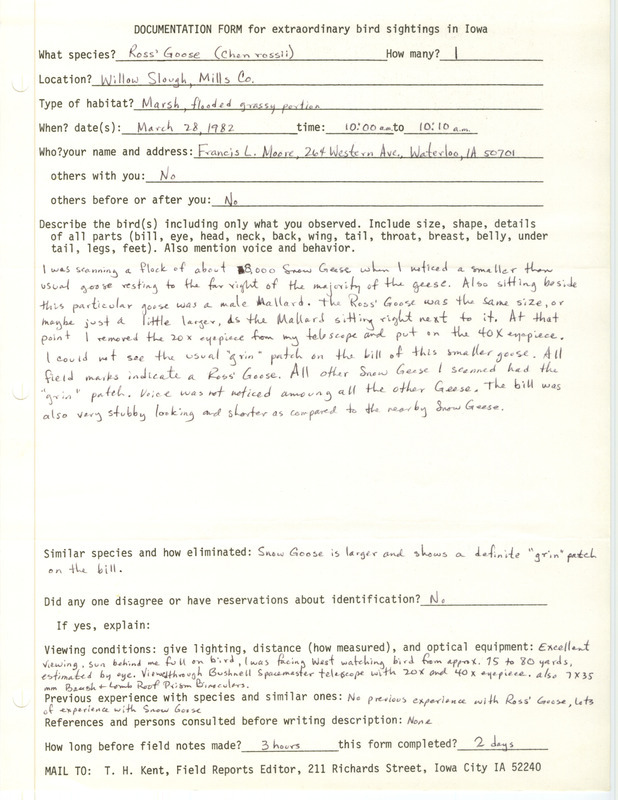 DOCUMENTATION FORM for extraordinary bird sightings in Iowa
What species? Ross' Goose (Chen rossii) How many? 1
Location? Willow Slough, Mills Co.
Type of habitat? Marsh, flooded grassy portion
When? date(s): March 28, 1982 time: 10:00 a.m. to 10:10 a.m.
Who?your name and address: Francis L. Moore, 264 Western Ave., Waterloo, IA 50701
others with you: No
others before or after you: No
Describe the bird(s) including only what you observed. Include size, shape, details
of all parts (bill, eye, head, neck, back, wing, tail, throat, breast, belly, under
tail, legs, feet). Also mention voice and behavior.
I was scanning a flock of about 8,000 Snow Geese when I noticed a smaller than
usual goose resting to the far right of the majority of the geese. Also sitting beside
this particular goose was a male Mallard. The Ross' Goose was the same size, or
maybe just a little larger, as the Mallard sitting right next to it. At that
point I removed the 20x eyepiece from my telescope and put on the 40X eyepiece.
I could not see the usual "grin" patch on the bill of this smaller goose. All
field marks indicate a Ross' Goose. All other Snow Geese I scanned had the
"grin" patch. Voice was not noticed amoung all the other Geese. The bill was
also very stubby looking and shorter as compared to the nearby Snow Geese.
Similar species and how eliminated: Snow Goose is larger and shows a definite "grin" patch
on the bill.
Did any one disagree or have reservations about identification? No
If yes, explain:
Viewing conditions: give lighting, distance (how measured), and optical equipment: Excellent
viewing. sun behind me full on bird, I was facing West watching bird from approx. 75 to 80 yards,
estimated by eye. View through Bushnell Spacemaster telescope with 20X and 40X eyepiece. also 7X35
mm Baush + Lomb Roof Prism Binoculars.
Previous experience with species and similar ones: No previous experience with Ross' Goose, lots
of experience with Snow Goose
References and persons consulted before writing description: None
How long before field notes made? 3 hours this form completed? 2 days
MAIL TO: T. H. Kent, Field Reports Editor, 211 Richards Street, Iowa City IA 52240